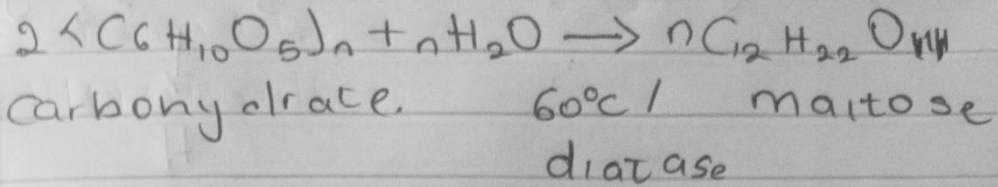 2<(C6H10O5)n + nH2O → nC12H22O11
carbohydrate. 60°C / maltose
diatase